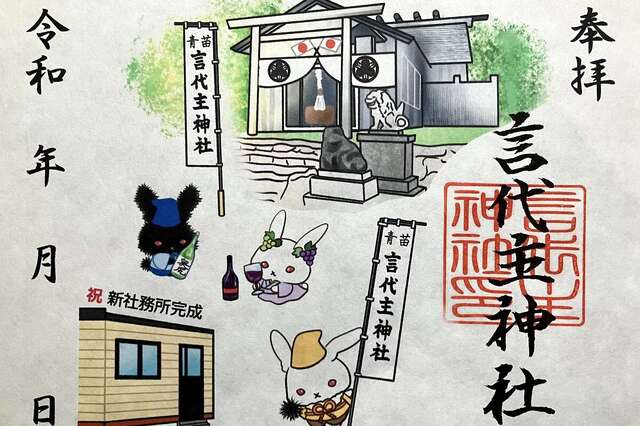 奉拝
言代主神社
言代主
神社印
青苗
言代主神社
青苗
言代主神社
祝 新社務所完成
令和 年 月 日